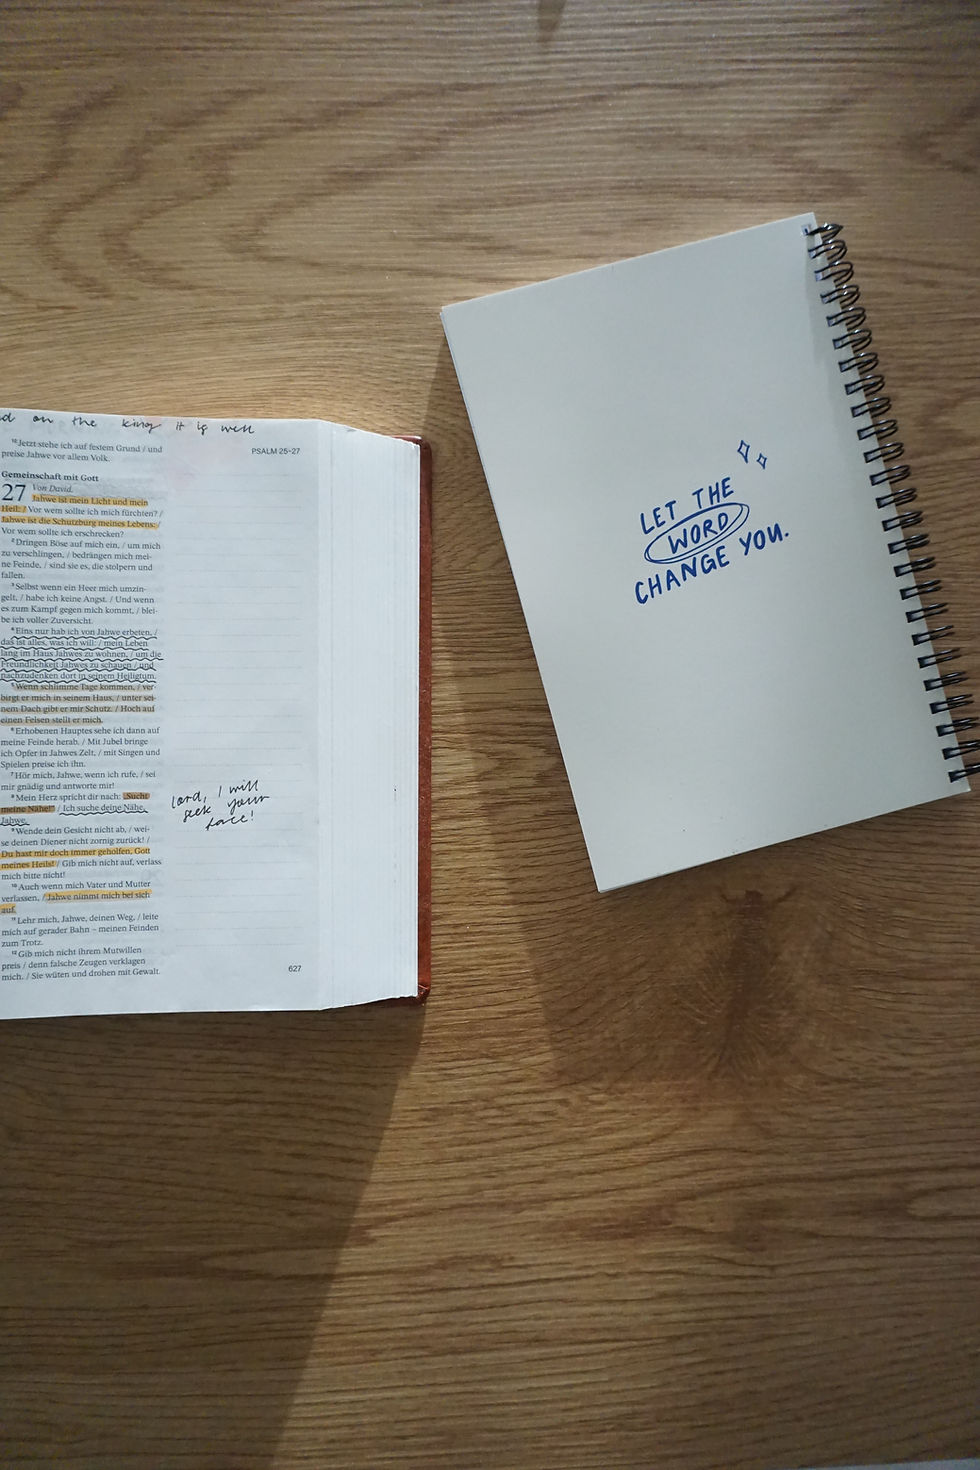 on the king it is well
¹⁰Jetzt stehe ich auf festem Grund / und
preise Jahwe vor allem Volk.
PSALM 25–27
Gemeinschaft mit Gott
27 Von David.
Jahwe ist mein Licht und mein
Heil: / Vor wem sollte ich mich fürchten? /
Jahwe ist die Schutzburg meines Lebens: /
Vor wem sollte ich erschrecken?
²Dringen Böse auf mich ein, / um mich
zu verschlingen, / bedrängen mich mei-
ne Feinde, / sind sie es, die stolpern und
fallen.
³Selbst wenn ein Heer mich umzin-
gelt, / habe ich keine Angst. / Und wenn
es zum Kampf gegen mich kommt, / blei-
be ich voller Zuversicht.
⁴Eins nur hab ich von Jahwe erbeten, /
das ist alles, was ich will: / mein Leben
lang im Haus Jahwes zu wohnen, / um die
Freundlichkeit Jahwes zu schauen / und
nachzudenken dort in seinem Heiligtum.
⁵Wenn schlimme Tage kommen, / ver-
birgt er mich in seinem Haus, / unter sei-
nem Dach gibt er mir Schutz. / Hoch auf
einen Felsen stellt er mich.
⁶Erhobenen Hauptes sehe ich dann auf
meine Feinde herab. / Mit Jubel bringe
ich Opfer in Jahwes Zelt, / mit Singen und
Spielen preise ich ihn.
⁷Hör mich, Jahwe, wenn ich rufe, / sei
mir gnädig und antworte mir!
⁸Mein Herz spricht dir nach: „Sucht
meine Nähe!“ / Ich suche deine Nähe,
Jahwe.
⁹Wende dein Gesicht nicht ab, / wei-
se deinen Diener nicht zornig zurück! /
Du hast mir doch immer geholfen, Gott
meines Heils! / Gib mich nicht auf, verlass
mich bitte nicht!
¹⁰Auch wenn mich Vater und Mutter
verlassen, / Jahwe nimmt mich bei sich
auf.
¹¹Lehr mich, Jahwe, deinen Weg, / leite
mich auf gerader Bahn – meinen Feinden
zum Trotz.
¹²Gib mich nicht ihrem Mutwillen
preis / denn falsche Zeugen verklagen
mich. / Sie wüten und drohen mit Gewalt.
lord, I will
seek your
face!
627
LET THE
WORD
CHANGE YOU.